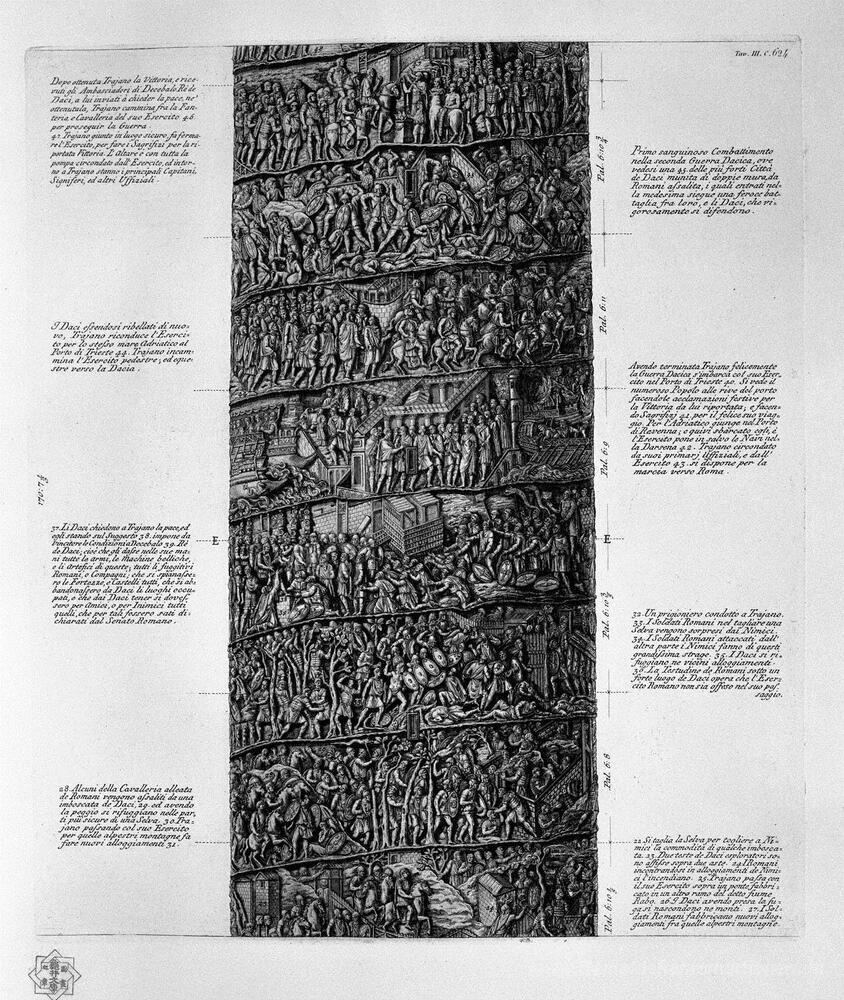 Tav. III. C. 624
Dopo ottenuta Trajano la Vittoria, e rice-
vuti gli Ambasciadori di Decebalo Rè de
Daci, a lui inviati à chieder la pace, ne'
ottenutala, Trajano cammina fra la Fan-
teria e Cavalleria del suo Esercito 46.
per proseguir la Guerra.
47. Trajano giunto in luogo sicuro, fa ferma-
re l'Esercito, per fare i Sagrifizj per la ri-
portata Vittoria. L'Altare e con tutta la
pompa circondato dall'Esercito, ed intor-
no a Trajano stanno i principali Capitani,
Signiferi, ed altri Uffiziali.
Primo sanguinoso Combattimento
nella seconda Guerra Dacica, ove
vedesi una 45. delle più forti Città
de Daci munita di doppie mura, da
Romani assalita, i quali entrati nel-
la medesima siegue una feroce bat-
taglia fra loro, e li Daci, che vi-
gorosamente si difendono.
Pal. 6: 10 3/4
I Daci essendosi ribellati di nuo-
vo, Trajano riconduce l'Eserci-
to per lo stesso mare Adriatico al
Porto di Trieste 44. Trajano incam-
mina l'Esercito pedestre, ed eque-
stre verso la Dacia.
Pal. 6: 11
Avendo terminata Trajano felicemente
la Guerra Dacica s'imbarca col suo Eser-
cito nel Porto di Trieste 40. Si vede il
numeroso Popolo alle rive del porto
facendole acclamazioni festive per
la Vittoria da lui riportata; e facen-
do Sagrifizj 41. per il felice suo viag-
gio. Per l'Adriatico giunge nel Porto
di Ravenna; e quivi sbarcato egli, e
l'Esercito pone in salvo le Navi nel-
la Darsena 42. Trajano circondato
da suoi primarj Uffiziali, e dall'
Esercito 43. si dispone per la
marcia verso Roma.
Pal. 6: 9
37. Li Daci chiedono a Trajano la pace, ed
egli stando sul Suggesto 38. impone da
Vincitore le Condizioni a Decebalo 39. Rè
de Daci; cioè che gli dasse nelle sue ma-
ni tutte le armi, le Machine belliche,
e li Artefici di queste; tutti li fuggitivi
Romani, e Compagni; che si spianasse-
ro le Fortezze, e Castelli tutti, che si ab-
bandonassero da Daci li luoghi occu-
pati, e che dai Daci tener si doves-
sero per Amici, o per Inimici tutti
quelli, che per tali fossero stati di-
chiarati dal Senato Romano.
E
E
Pal. 6: 10 3/4
32. Un prigioniero condotto a Trajano.
33. I Soldati Romani nel tagliare una
Selva vengono sorpresi dai Nimici.
34. I Soldati Romani attaccati dall'
altra parte i Nimici fanno di questi
grandissima strage. 35. I Daci si ri-
fuggiano ne vicini alloggiamenti.
36. La Testudine de Romani sotto un
forte luogo de Daci opera che l'Eser-
cito Romano non sia offeso nel suo pas-
saggio.
Pal. 6: 8
28. Alcuni della Cavalleria alleata
de Romani vengono assaliti da una
imboscata de Daci, 29. ed avendo
la peggio si rifuggiano nelle par-
ti più sicure di una Selva. 30. Tra-
jano passando col suo Esercito
per quelle alpestri montagne fa
fare nuovi alloggiamenti 31.
22. Si taglia la Selva per togliere a Ni-
mici la commodità di qualche imbosca-
ta. 23. Due teste de Daci esploratori so-
no affisse sopra due aste. 24. I Romani
incontrandosi in alloggiamenti de Nimi-
ci l'incendiano. 25. Trajano passa con
il suo Esercito sopra un ponte fabbri-
cato in un altro ramo del detto fiume
Rabo. 26. I Daci avendo presa la fu-
ga si nascondono ne monti. 27. I Sol-
dati Romani fabbricano nuovi allog-
giamenti fra quelle alpestri montagne.
Pal. 6: 10 1/2